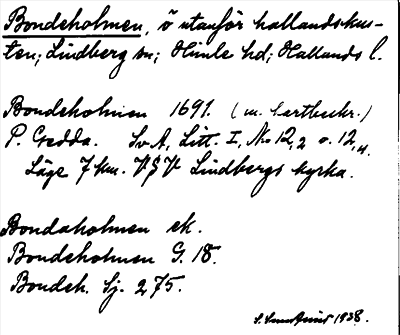 Bondeholmen, ö utanför hallandskus-
ten; Lindberg sn; Himle hd; Hallands l.
Bondeholmen 1691. (m. cartbeskr.)
P. Gedda. SvA, Litt. I, No 12,2 o. 12,4.
Läge 7 km. V§V Lindbergs kyrka.
Bondaholmen ek.
Bondeholmen G. 18.
Bondeh. Sj. 275.
S. 1938.